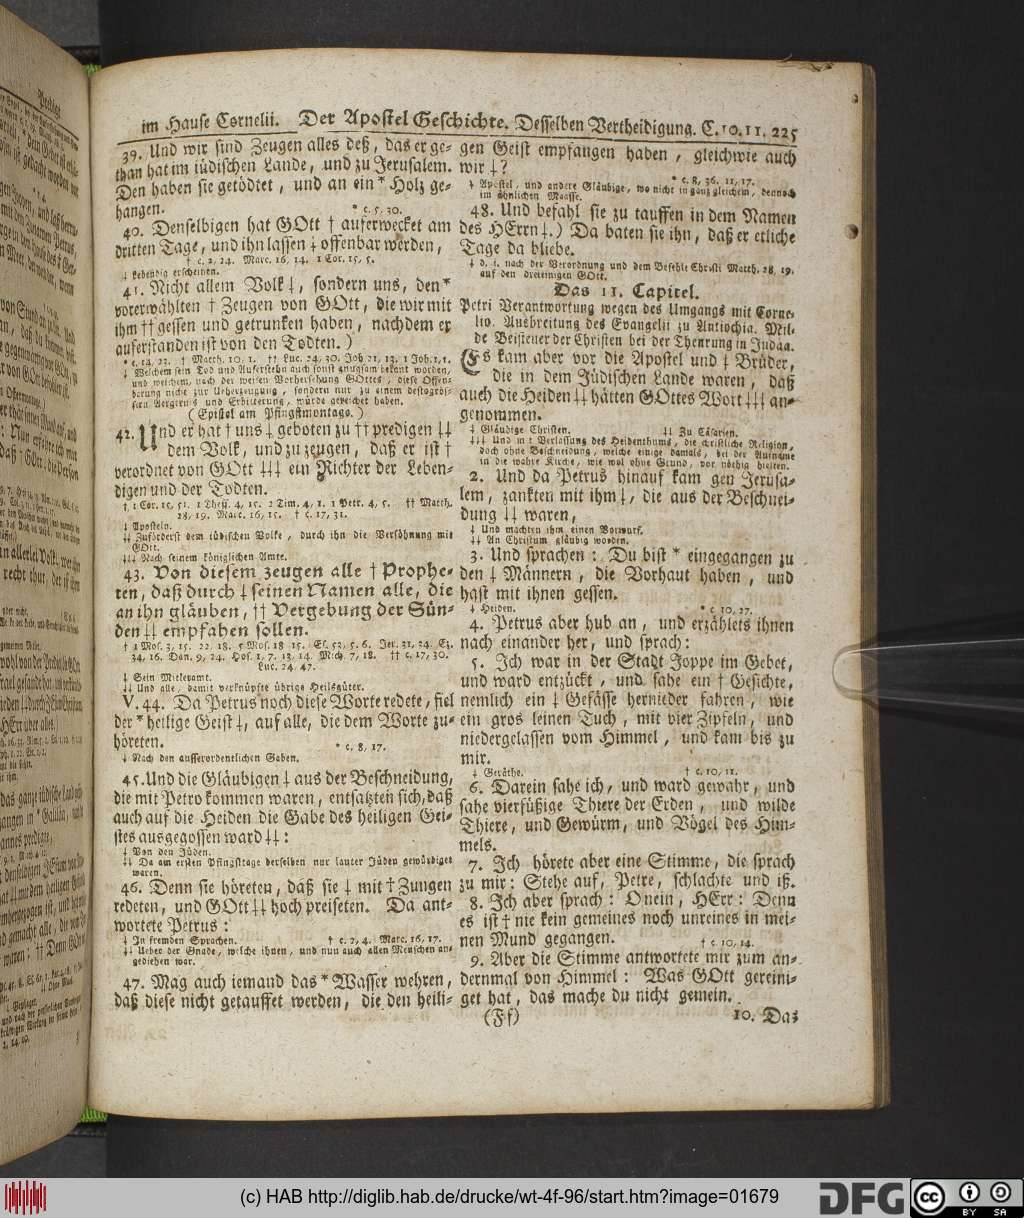 im Hause Cornelii. Der Apostel Geschichte. Desselben Vertheidigung. C. 10. 11. 225
39. Und wir sind Zeugen alles deß, das er ge-
than hat im jüdischen Lande, und zu Jerusalem.
Den haben sie getödtet, und an ein * Holz ge-
hangen.
* c. 5, 30.
40. Denselbigen hat GOtt † auferwecket am
dritten Tage, und ihn lassen ⸸ offenbar werden,
† c. 2, 24. Marc. 16, 14. 1 Cor. 15, 5.
⸸ Lebendig erscheinen.
41. Nicht allem Volk ⸸, sondern uns, den *
vorerwählten † Zeugen von GOtt, die wir mit
ihm †† gessen und getrunken haben, nachdem er
auferstanden ist von den Todten.)
* c. 14, 22. † Matth. 10, 1. †† Luc. 24, 30. Joh 21, 13. 1 Joh. 1, 1.
⸸ Welchem sein Tod und Auferstehn auch sonst gnugsam bekant worden,
und welchem, nach der weisen Vorhersehung GOttes, diese Offen-
barung nicht zur Ueberzeugung, sondern nur zu einem destogrös-
sern Aergerniß und Erbitterung, würde gereichet haben.
(Epistel am Pfingstmontage.)
42. Und er hat † uns ⸸ geboten zu †† predigen ⸸⸸
dem Volk, und zu zeugen, daß er ist †
verordnet von GOtt ⸸⸸⸸ ein Richter der Leben-
digen und der Todten.
† 1 Cor. 15, 51. 1 Thess. 4, 15. 2 Tim. 4, 1. 1 Petr. 4, 5. †† Matth.
28, 19. Marc. 16, 15. † c. 17, 31.
⸸ Aposteln.
⸸⸸ Zuförderst dem jüdischen Volke, durch ihn die Versöhnung mit
GOtt.
⸸⸸⸸ Nach seinem königlichen Amte.
43. Von diesem zeugen alle † Prophe-
ten, daß durch ⸸ seinen Namen alle, die
an ihn gläuben, †† Vergebung der Sün-
den ⸸⸸ empfahen sollen.
† 1 Mos. 3, 15. 22, 18. 5 Mos. 18, 15. Es. 53, 5. 6. Jer. 31, 34. Ez.
34, 16. Dan. 9, 24. Hos. 1, 7. 13, 14. Mich. 7, 18. †† c. 17, 30.
Luc. 24. 47.
⸸ Sein Mittleramt.
⸸⸸ Und alle, damit verknüpfte übrige Heilsgüter.
V. 44. Da Petrus noch diese Worte redete, fiel
der * heilige Geist ⸸, auf alle, die dem Worte zu-
höreten.
* c. 8, 17.
⸸ Nach den ausserordentlichen Gaben.
45. Und die Gläubigen ⸸ aus der Beschneidung,
die mit Petro kommen waren, entsatzten sich, daß
auch auf die Heiden die Gabe des heiligen Gei-
stes ausgegossen ward ⸸⸸:
⸸ Von den Jüden.
⸸⸸ Da am ersten Pfingsttage derselben nur lauter Jüden gewürdiget
waren.
46. Denn sie höreten, daß sie ⸸ mit † Zungen
redeten, und GOtt ⸸⸸ hoch preiseten. Da ant-
wortete Petrus:
⸸ In fremden Sprachen. † c. 2, 4. Marc. 16, 17.
⸸⸸ Ueber der Gnade, welche ihnen, und nun auch allen Menschen an-
gediehen war.
47. Mag auch iemand das * Wasser wehren,
daß diese nicht getauffet werden, die den heili-
gen Geist empfangen haben, gleichwie auch
wir ⸸?
* c. 8, 36. 11, 17.
⸸ Apostel, und andere Gläubige, wo nicht in ganz gleichem, dennoch
im ähnlichen Maasse.
48. Und befahl sie zu tauffen in dem Namen
des HErrn ⸸.) Da baten sie ihn, daß er etliche
Tage da bliebe.
⸸ d. i. nach der Verordnung und dem Befehle Christi Matth. 28, 19.
auf den dreieinigen GOtt.
Das 11. Capitel.
Petri Verantwortung wegen des Umgangs mit Corne-
lio. Ausbreitung des Evangelii zu Antiochia. Mil-
de Beisteuer der Christen bei der Theurung in Judäa.
Es kam aber vor die Apostel und ⸸ Brüder,
die in dem Jüdischen Lande waren, daß
auch die Heiden ⸸⸸ hätten GOttes Wort ⸸⸸⸸ an-
genommen.
⸸ Gläubige Christen. ⸸⸸ Zu Cäsarien.
⸸⸸⸸ Und mit Verlassung des Heidenthums, die christliche Religion,
doch ohne Beschneidung, welche einige damals, bei der Aufnahme
in die wahre Kirche, wie wol ohne Grund, vor nöthig hielten.
2. Und da Petrus hinauf kam gen Jerusa-
lem, zankten mit ihm ⸸, die aus der Beschnei-
dung ⸸⸸ waren,
⸸ Und machten ihm einen Vorwurf.
⸸⸸ An Christum gläubig worden.
3. Und sprachen: Du bist * eingegangen zu
den ⸸ Männern, die Vorhaut haben, und
hast mit ihnen gessen.
⸸ Heiden. * c. 10, 27.
4. Petrus aber hub an, und erzählets ihnen
nach einander her, und sprach:
5. Ich war in der Stadt Joppe im Gebet,
und ward entzückt, und sahe ein † Gesichte,
nemlich ein ⸸ Gefässe hernieder fahren, wie
ein gros leinen Tuch, mit vier Zipfeln, und
niedergelassen vom Himmel, und kam bis zu
mir.
⸸ Geräthe. † c. 10, 11.
6. Darein sahe ich, und ward gewahr, und
sahe vierfüßige Thiere der Erden, und wilde
Thiere, und Gewürm, und Vögel des Him-
mels.
7. Ich hörete aber eine Stimme, die sprach
zu mir: Stehe auf, Petre, schlachte und iß.
8. Ich aber sprach: O nein, HErr: Denn
es ist † nie kein gemeines noch unreines in mei-
nen Mund gegangen.
† c. 10, 14.
9. Aber die Stimme antwortete mir zum an-
dernmal von Himmel: Was GOtt gereini-
get hat, das mache du nicht gemein.
(Ff)
10. Das
(c) HAB http://diglib.hab.de/drucke/wt-4f-96/start.htm?image=01679
DFG
cc BY SA